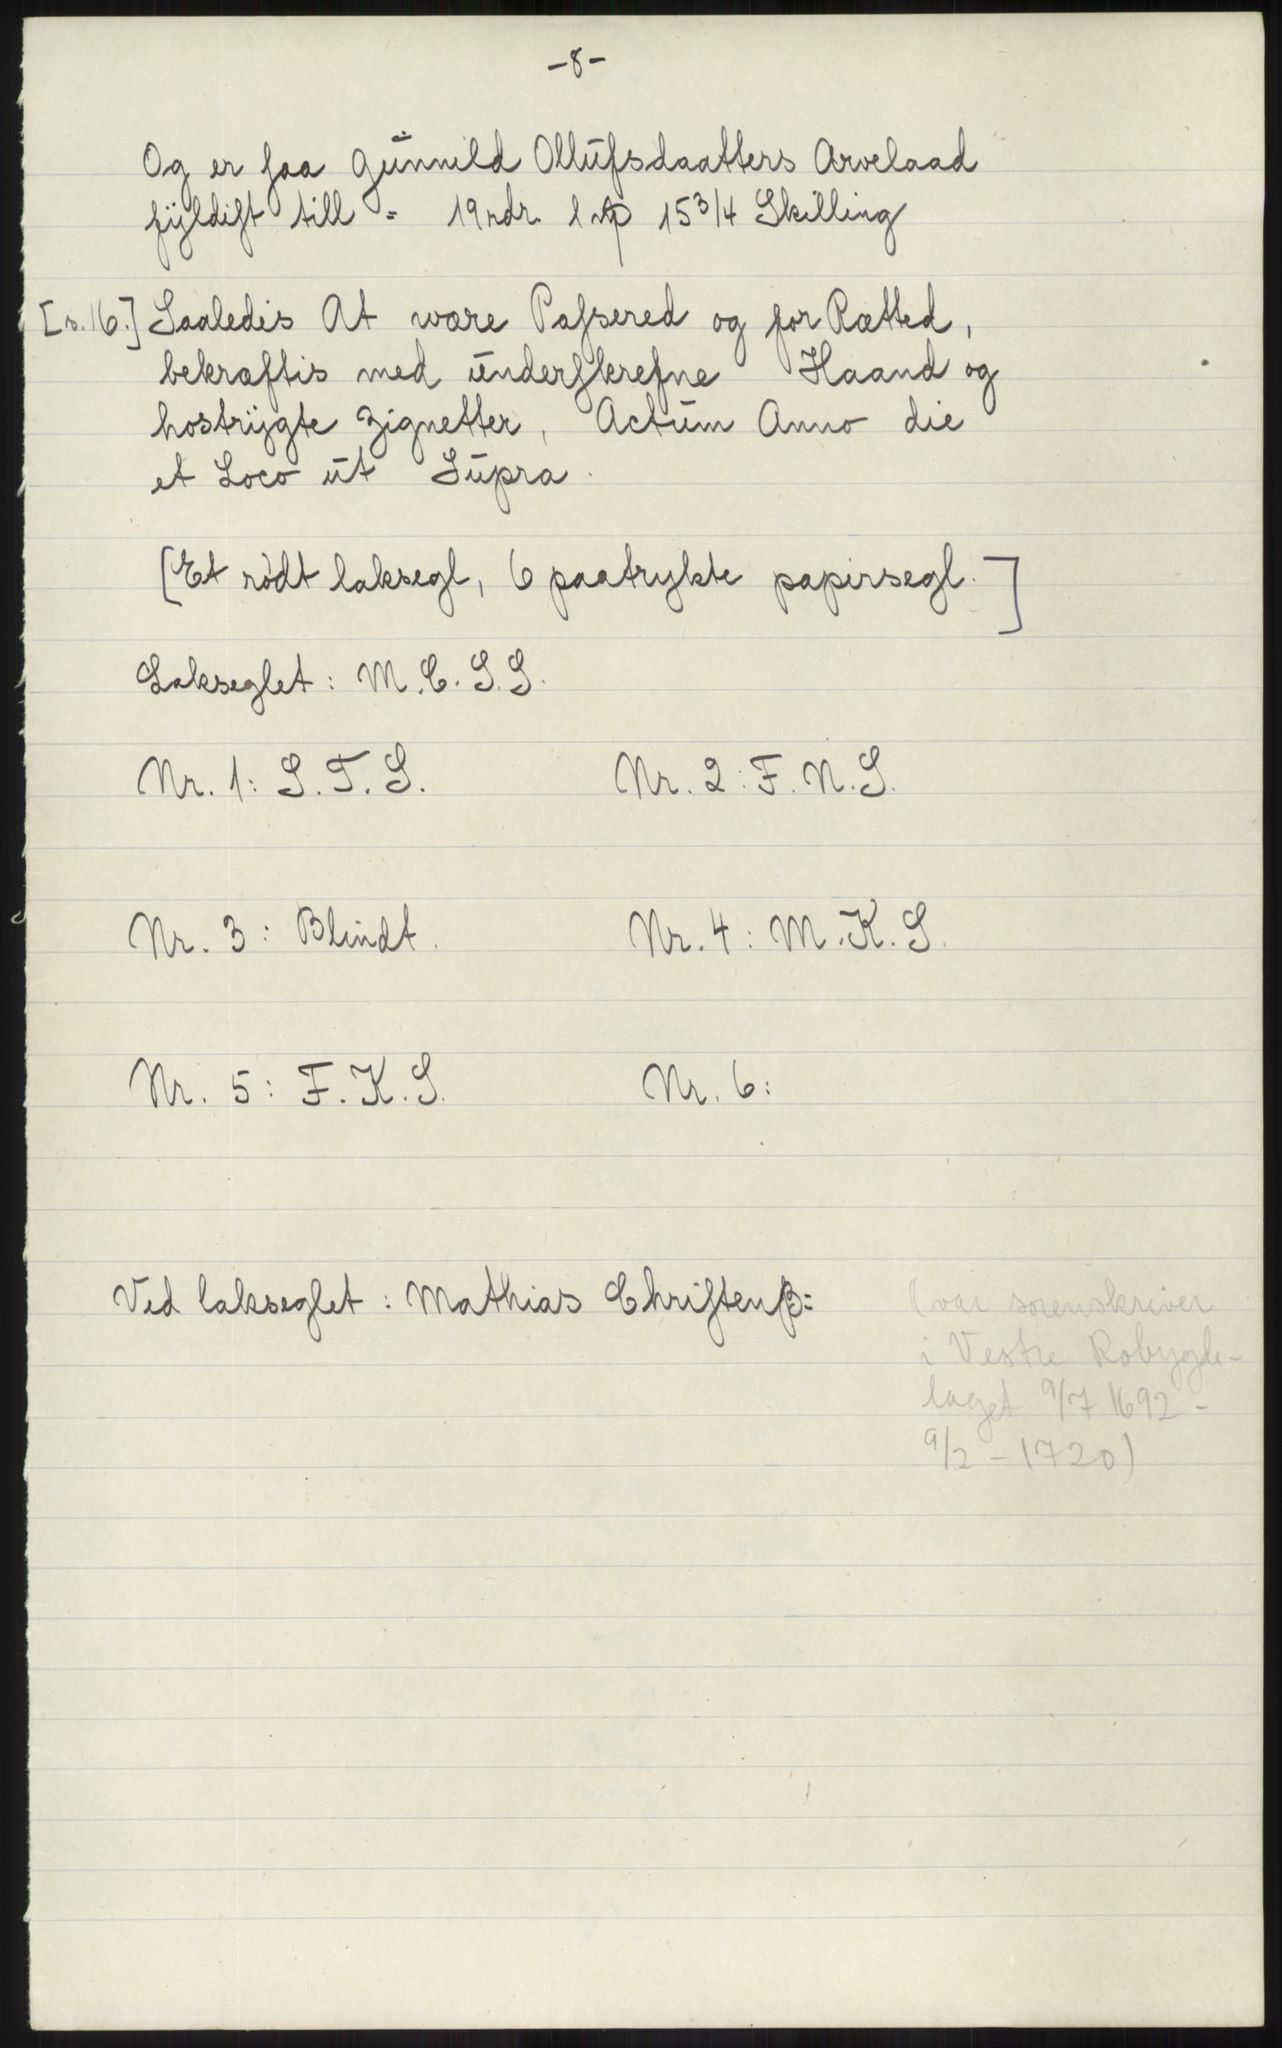 -8-
Og er saa Gunnild Ollufsdaatters Arvelaad
fyldist till = 19 rdr. 1 15 3/4 Skilling
[s.16.] Saaledis At være Passered og for Rætted,
bekræftis med underskrefne Haand og
hostrygte Zignetter, Actum Anno die
et Loco ut Supra.
[Et rødt laksegl, 6 paatrykte papirsegl.]
Lakseglet: M.C.S.S.
Nr. 1: S.T.S. Nr. 2: F.N.S.
Nr. 3: Blindt. Nr. 4: M.K.S.
Nr. 5: F.K.S. Nr. 6:
Ved lakseglet: Mathias Christenß:
(var sorenskriver
i Vestre Robygde-
laget 9/7 1692 -
9/2 - 1720)